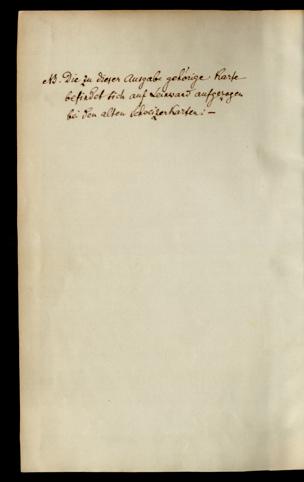 NB. Die zu dieser Ausgabe gehörige Karte
befindet sich auf Leinwand aufgezogen
bei den alten Schweizerkarten. —